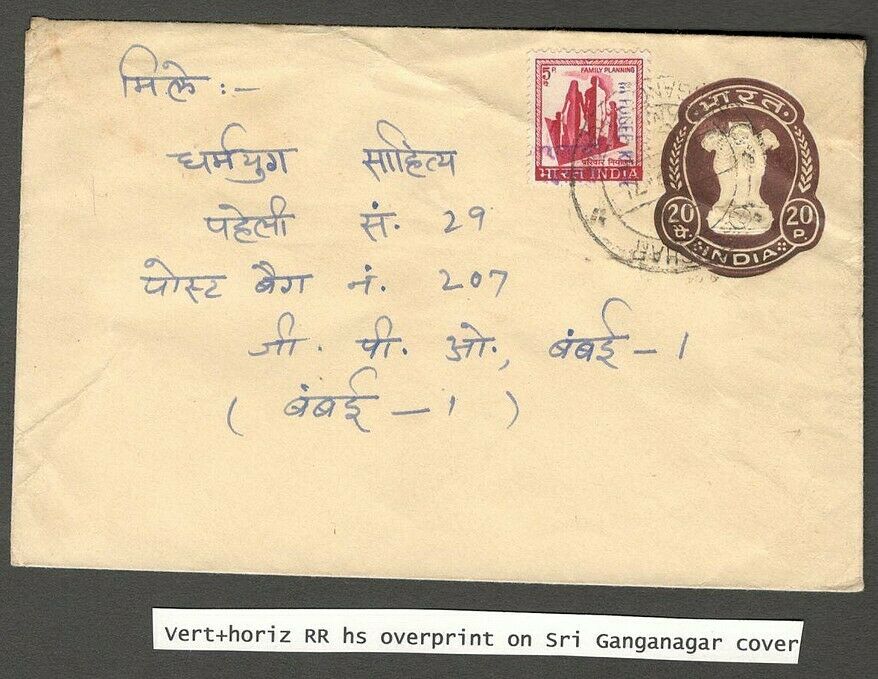 मिले :-
धर्मयुग साहित्य
पहेली सं. 29
पोस्ट बैग नं. 207
जी. पी. ओ., बंबई - 1
( बंबई - 1 )
5 P.
FAMILY PLANNING
REFUGEE RELIEF
परिवार नियोजन
भारत INDIA
भारत
20 पै.
20 P.
INDIA
Vert+horiz RR hs overprint on Sri Ganganagar cover